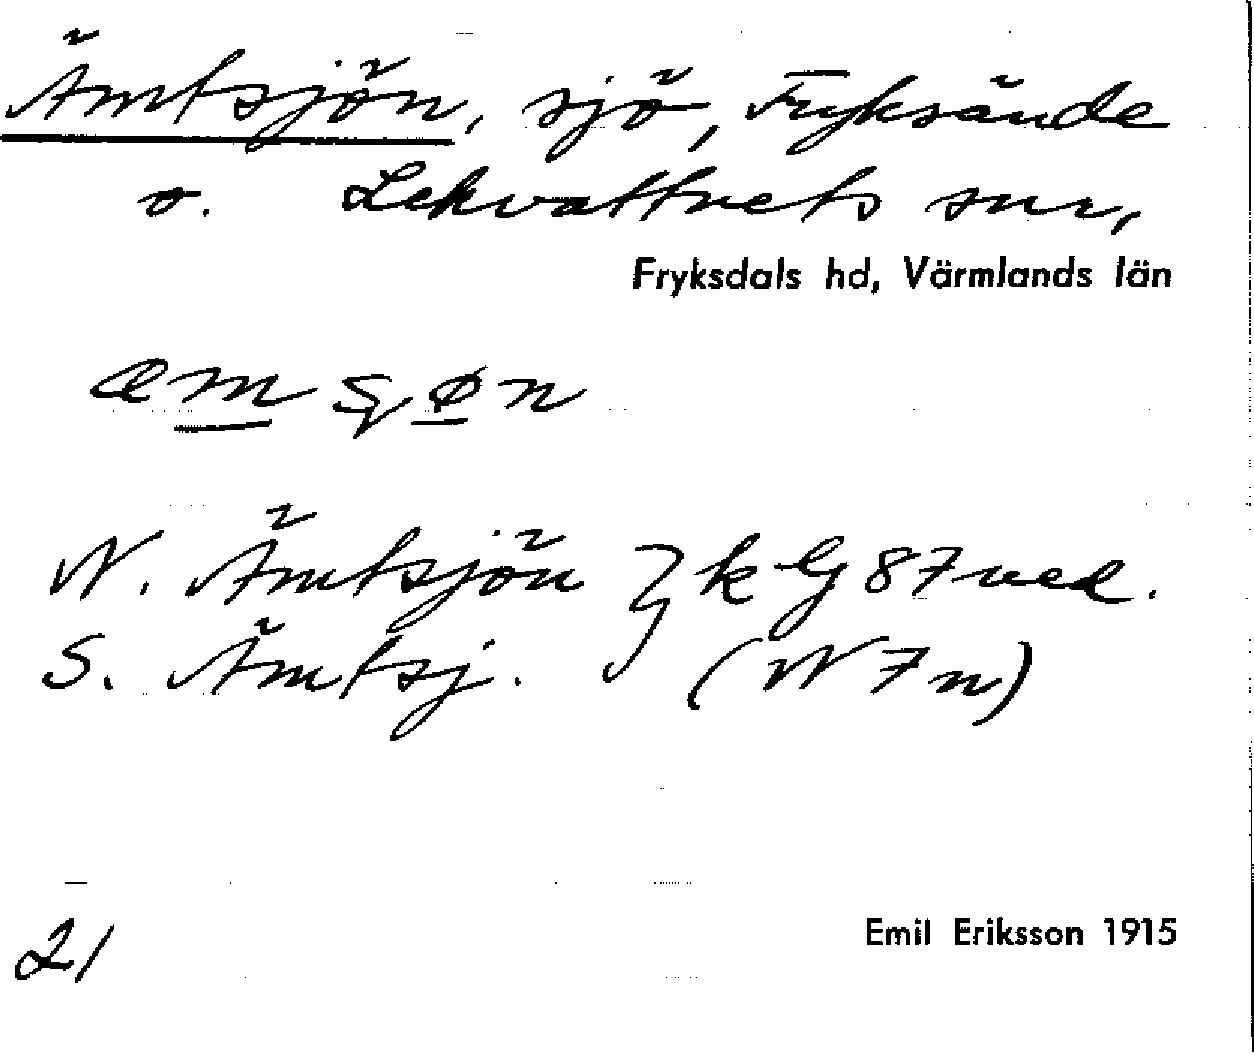 Ämtsjön, sjö, Fryksände
o. Lekvattnets snr,
Fryksdals hd, Värmlands län
N. Ämtsjön } k G 87 ned.
S. Ämtsj. (W 7 n)
21
Emil Eriksson 1915